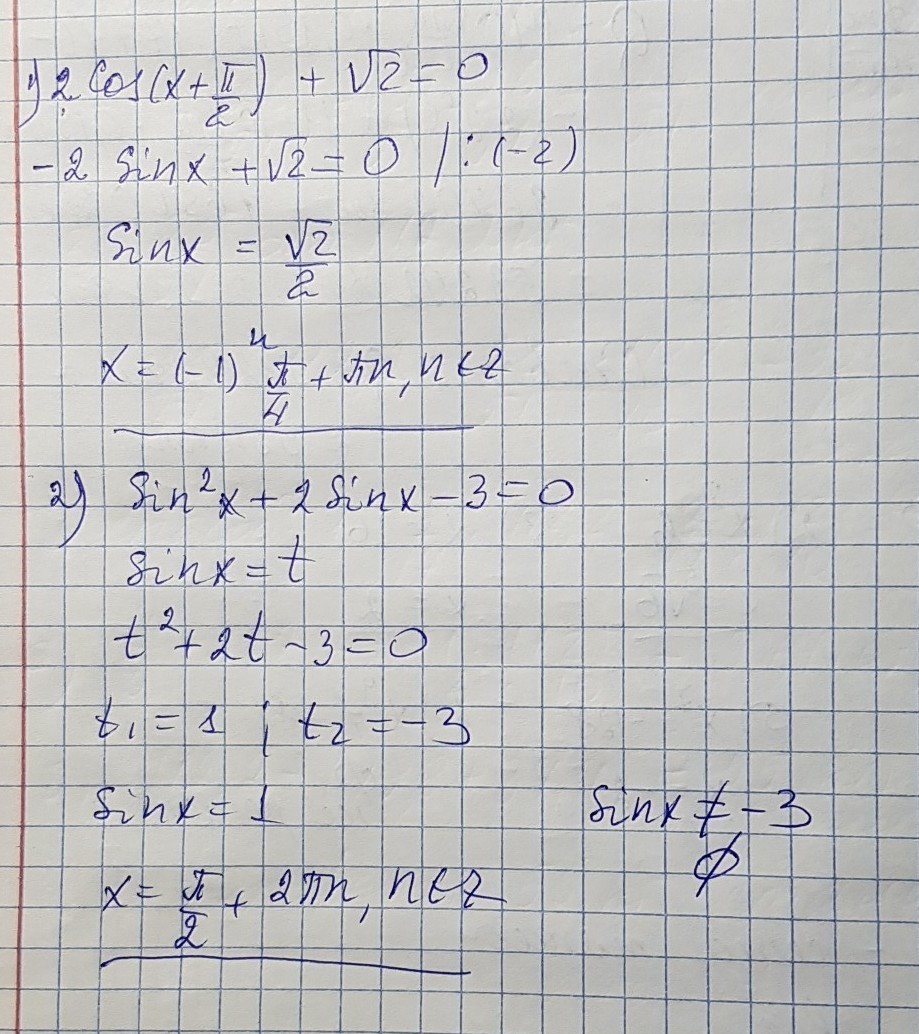 1) 2 cos(x + π/2) + √2 = 0
-2 sinx + √2 = 0 | : (-2)
sinx = √2/2
x = (-1)ⁿ π/4 + πn, n ∈ z
2) sin²x + 2 sinx - 3 = 0
sinx = t
t² + 2t - 3 = 0
t₁ = 1 ; t₂ = -3
sinx = 1 sinx ≠ -3
∅
x = π/2 + 2πn, n ∈ z